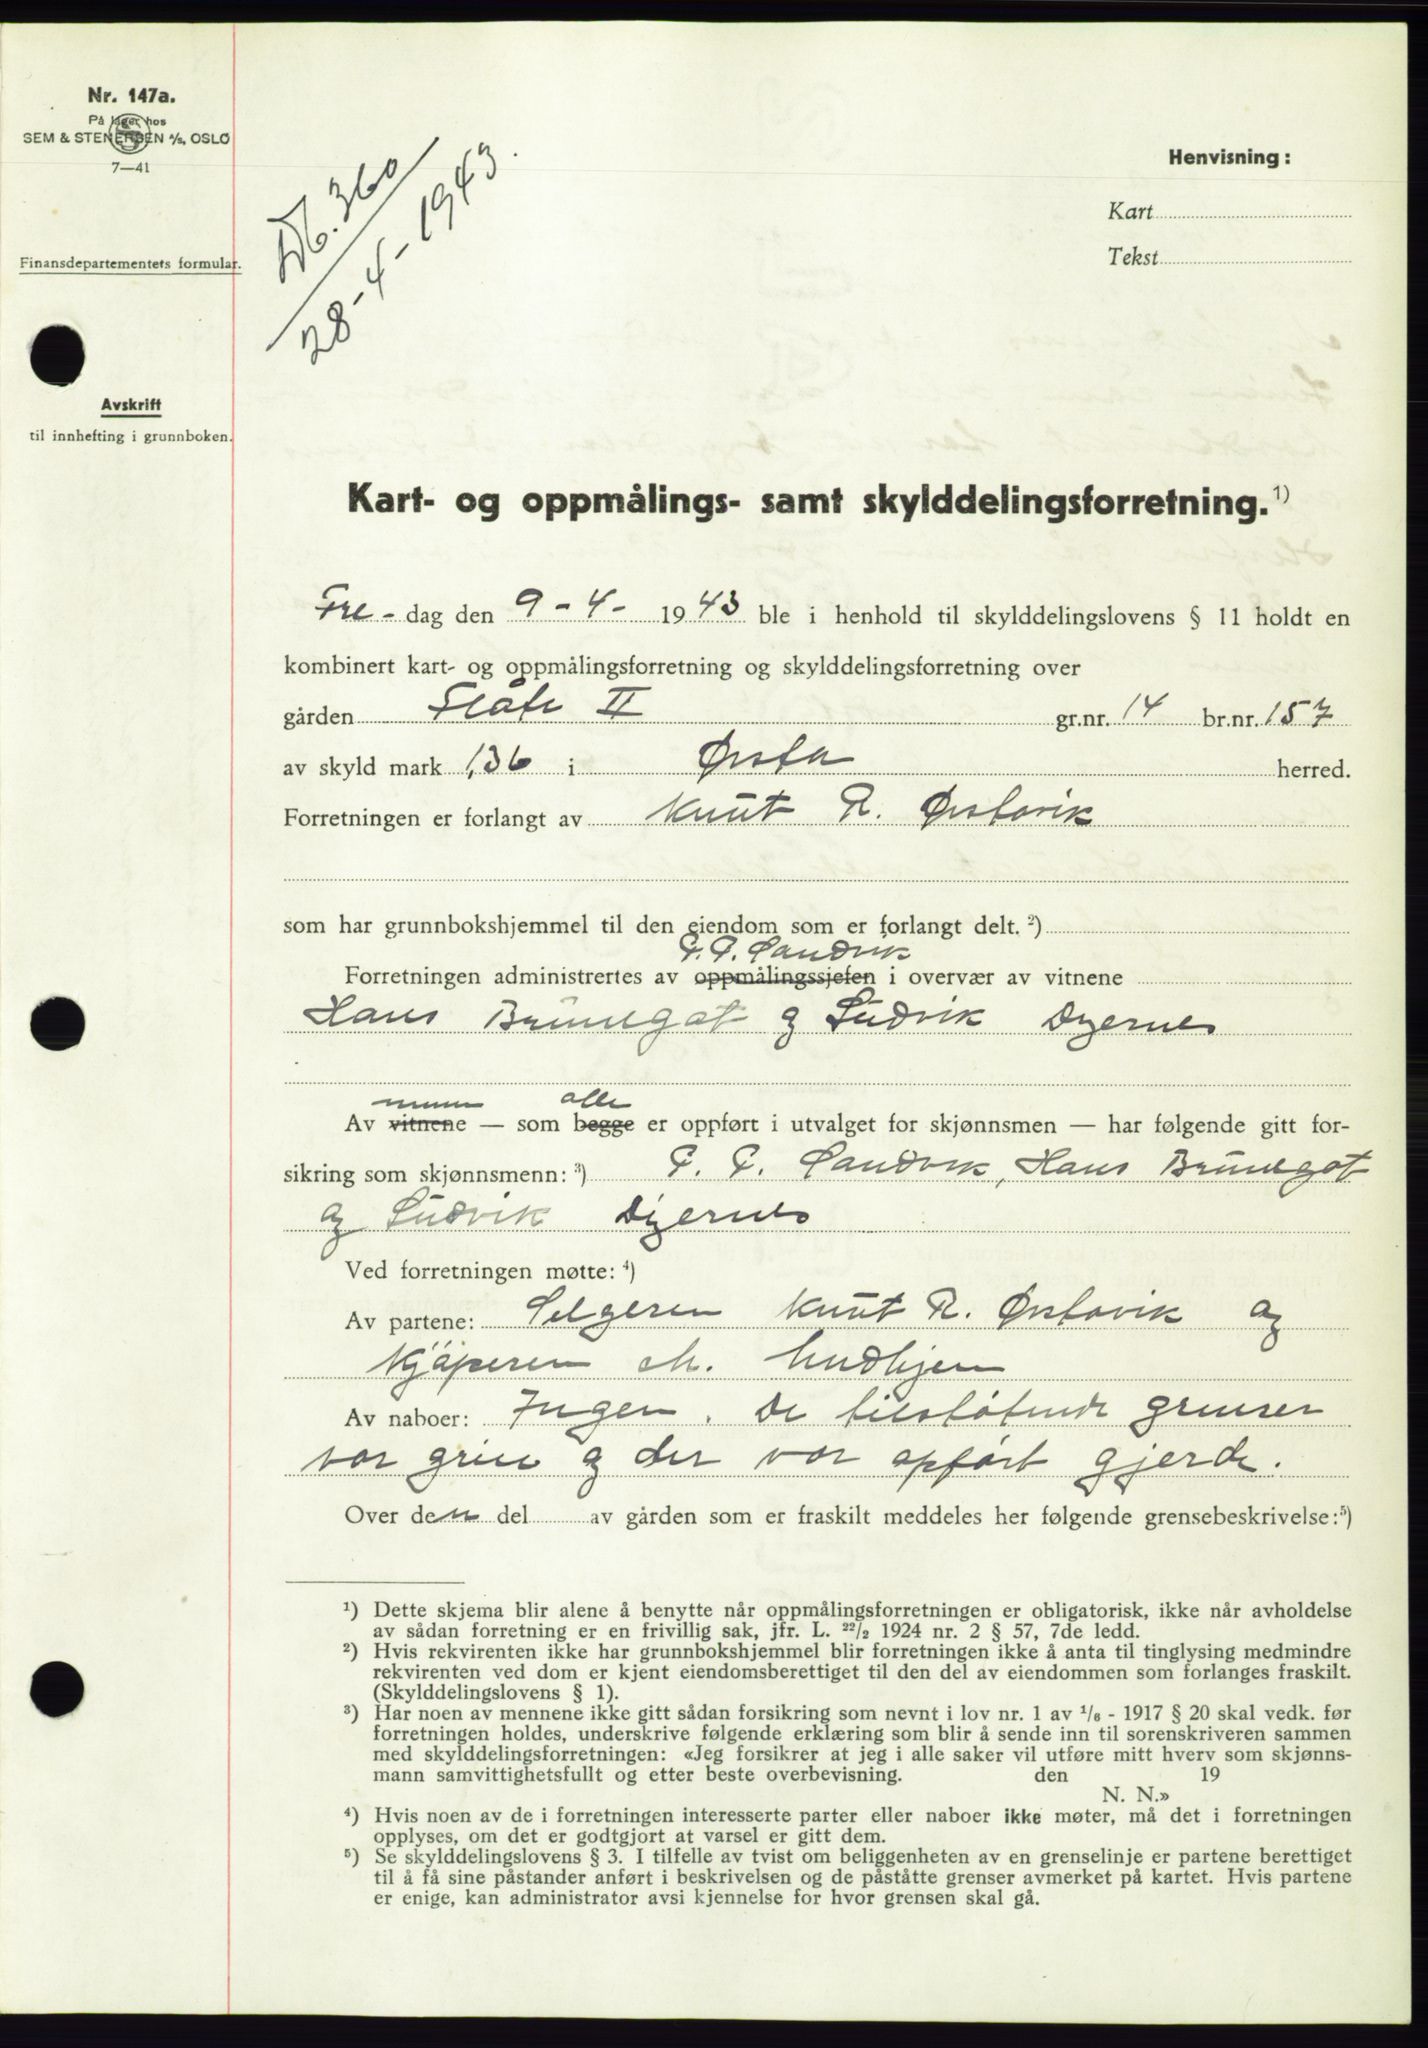 Nr. 147a.
På lager hos
SEM & STENERSEN A/S, OSLO
7—41
Finansdepartementets formular.
Avskrift
til innhefting i grunnboken.
Db. 360
28-4-1943.
Henvisning:
Kart
Tekst
Kart- og oppmålings- samt skylddelingsforretning.¹)
Fre-dag den 9-4- 1943 ble i henhold til skylddelingslovens § 11 holdt en
kombinert kart- og oppmålingsforretning og skylddelingsforretning over
gården Flåte II gr.nr. 14 br.nr. 157
av skyld mark 1,36 i Ørsta herred.
Forretningen er forlangt av Knut R. Ørstavik
som har grunnbokshjemmel til den eiendom som er forlangt delt.²)
P. P. Sandvik
Forretningen administrertes av oppmålingssjefen i overvær av vitnene
Hans Brungot og Ludvik Digernes
menn alle
Av vitnene — som begge er oppført i utvalget for skjønnsmen — har følgende gitt for-
sikring som skjønnsmenn:³) P. P. Sandvik, Hans Brungot
og Ludvik Digernes
Ved forretningen møtte:⁴)
Av partene: Selgeren Knut R. Ørstavik og
Kjøperen M. Indhjem
Av naboer: Ingen. De tilstøtende grenser
var grei og der var opført gjerde.
Over den del av gården som er fraskilt meddeles her følgende grensebeskrivelse:⁵)
¹) Dette skjema blir alene å benytte når oppmålingsforretningen er obligatorisk, ikke når avholdelse
av sådan forretning er en frivillig sak, jfr. L. 22/2 1924 nr. 2 § 57, 7de ledd.
²) Hvis rekvirenten ikke har grunnbokshjemmel blir forretningen ikke å anta til tinglysing medmindre
rekvirenten ved dom er kjent eiendomsberettiget til den del av eiendommen som forlanges fraskilt.
(Skylddelingslovens § 1).
³) Har noen av mennene ikke gitt sådan forsikring som nevnt i lov nr. 1 av 1/6 - 1917 § 20 skal vedk. før
forretningen holdes, underskrive følgende erklæring som blir å sende inn til sorenskriveren sammen
med skylddelingsforretningen: «Jeg forsikrer at jeg i alle saker vil utføre mitt hverv som skjønns-
mann samvittighetsfullt og etter beste overbevisning. den 19
N. N.»
⁴) Hvis noen av de i forretningen interesserte parter eller naboer ikke møter, må det i forretningen
opplyses, om det er godtgjort at varsel er gitt dem.
⁵) Se skylddelingslovens § 3. I tilfelle av tvist om beliggenheten av en grenselinje er partene berettiget
til å få sine påstander anført i beskrivelsen og de påståtte grenser avmerket på kartet. Hvis partene
er enige, kan administrator avsi kjennelse for hvor grensen skal gå.